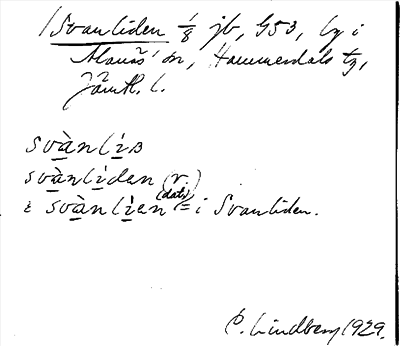 Svanliden 1/8 jb, G53, by i
Alanäs' sn, Hammerdals tg,
Jämtl. l.
svànlìɜ
svànlìden (r.)
i svànlìen (dat.) = i Svanliden.
C. Lindberg 1929.